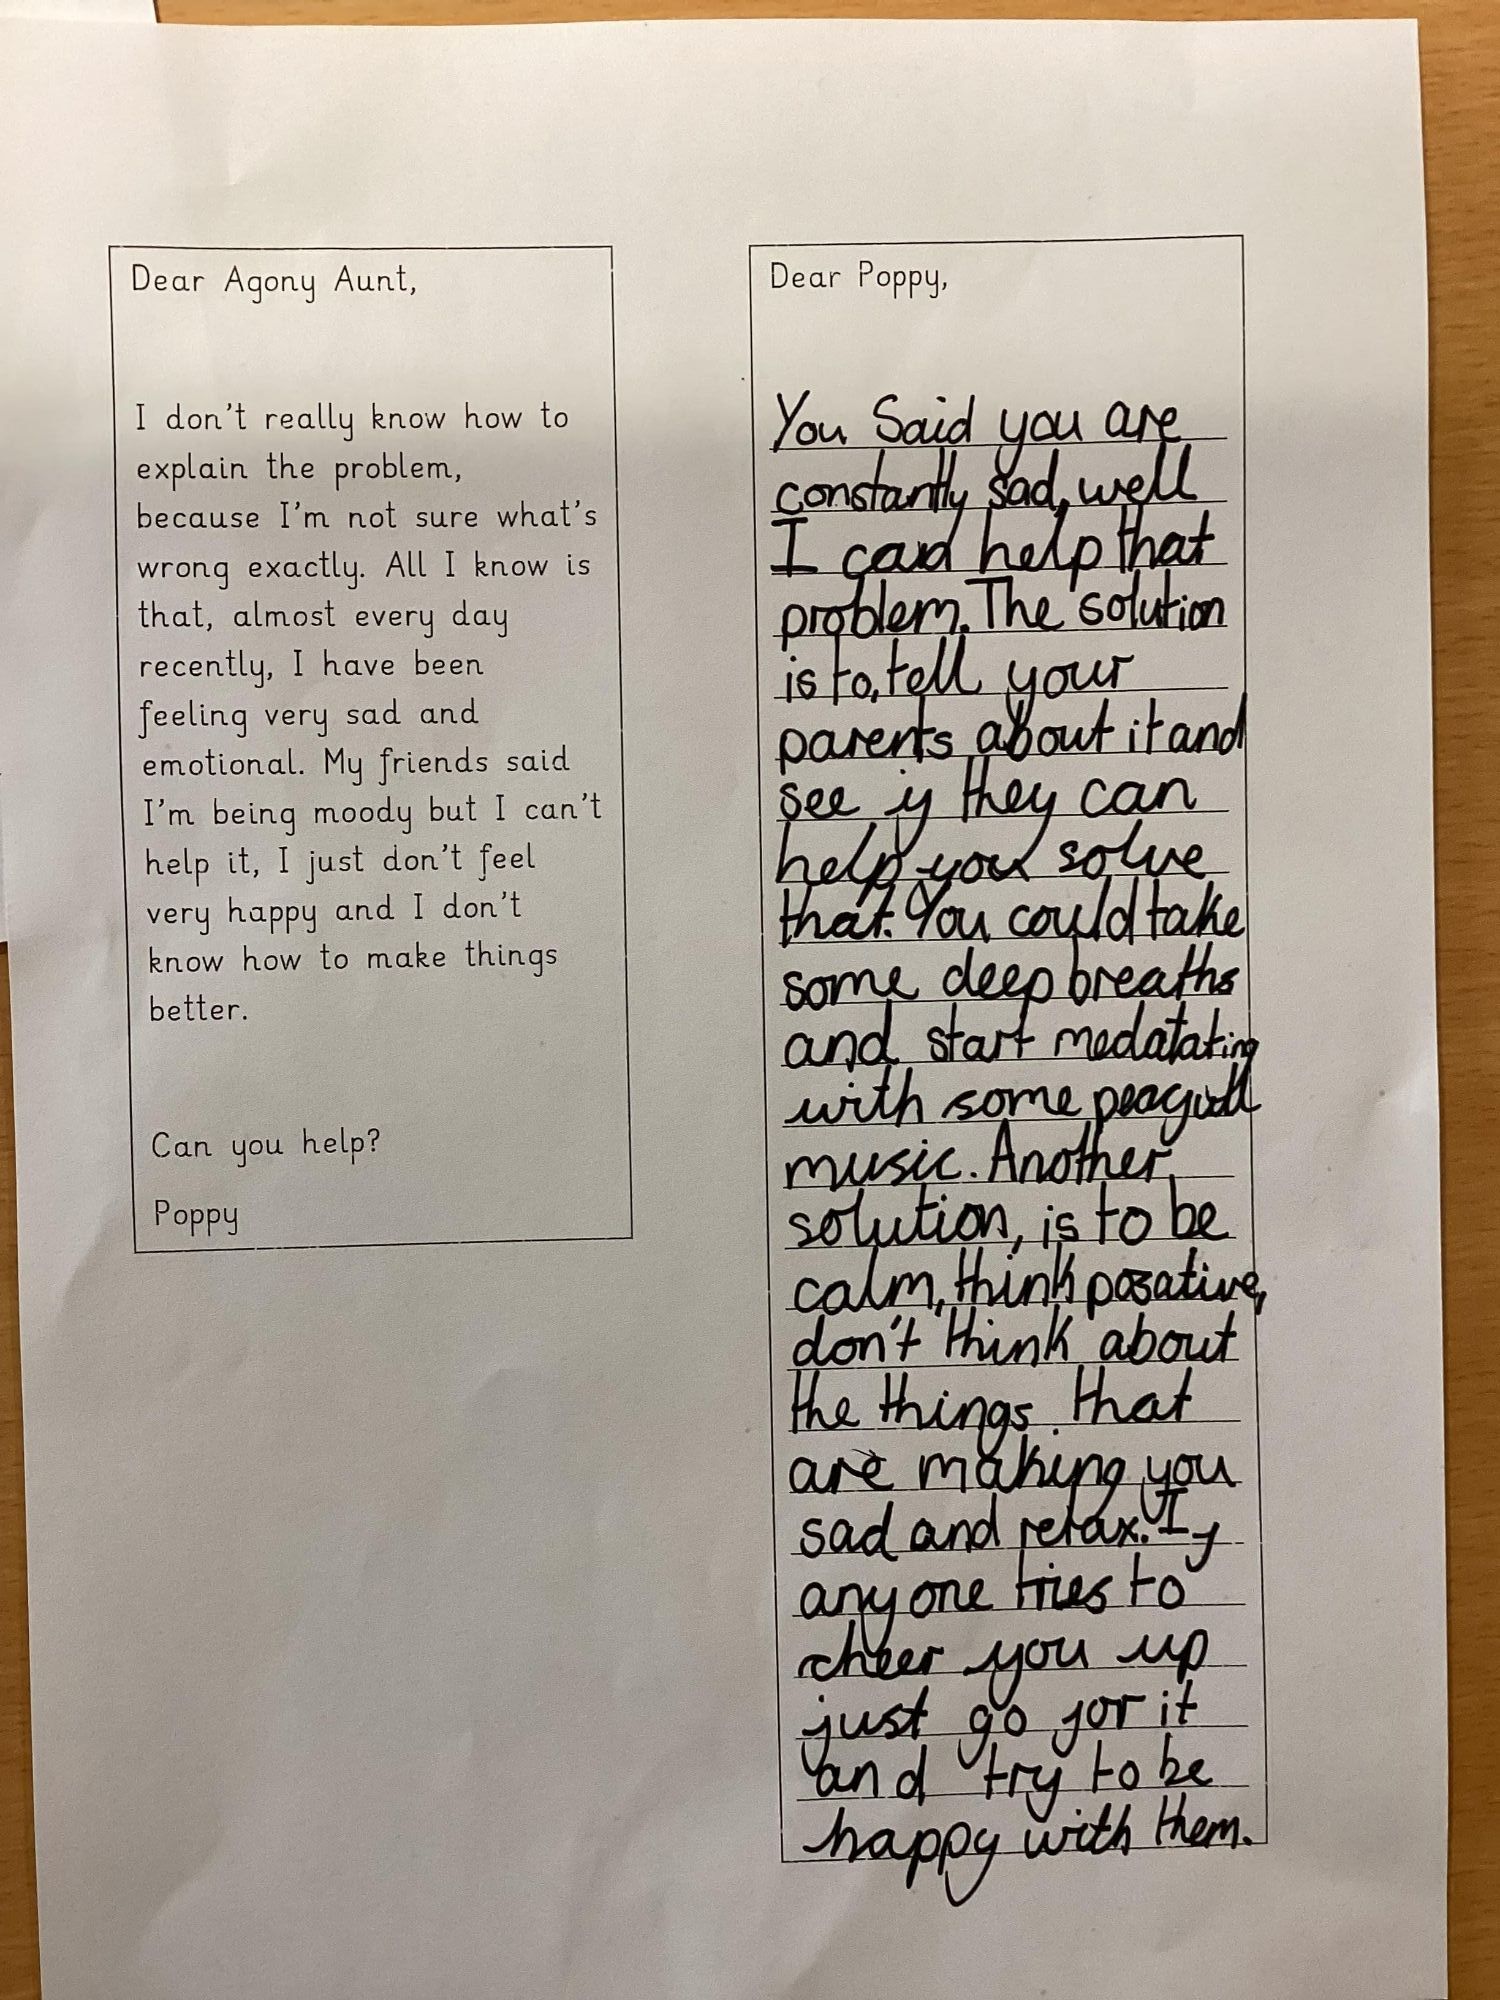 Dear Agony Aunt,
I don't really know how to
explain the problem,
because I'm not sure what's
wrong exactly. All I know is
that, almost every day
recently, I have been
feeling very sad and
emotional. My friends said
I'm being moody but I can't
help it, I just don't feel
very happy and I don't
know how to make things
better.
Can you help?
Poppy
Dear Poppy,
You Said you are
constantly sad, well
I can help that
problem. The solution
is to, tell your
parents about it and
see if they can
help you solve
that. You could take
some deep breaths
and start medatating
with some
music. Another
solution, is to be
calm, think posative,
don't think about
the things that
are making you
sad and relax. If
anyone tries to
cheer you up
just go for it
and try to be
happy with them.